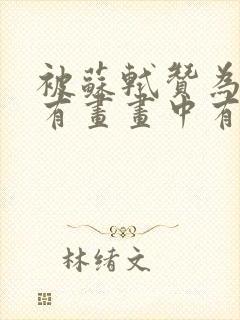 被蘇軾贊為
有畫畫中有
林绪文